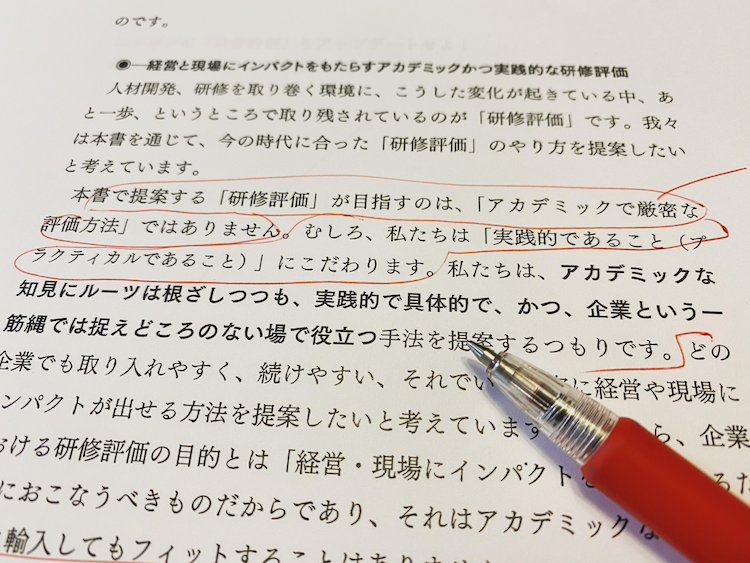 のです。
◉─経営と現場にインパクトをもたらすアカデミックかつ実践的な研修評価
人材開発、研修を取り巻く環境に、こうした変化が起きている中、あ
と一歩、というところで取り残されているのが「研修評価」です。我々
は本書を通じて、今の時代に合った「研修評価」のやり方を提案したい
と考えています。
本書で提案する「研修評価」が目指すのは、「アカデミックで厳密な
評価方法」ではありません。むしろ、私たちは「実践的であること（プ
ラクティカルであること）」にこだわります。私たちは、アカデミックな
知見にルーツは根ざしつつも、実践的で具体的で、かつ、企業という一
筋縄では捉えどころのない場で役立つ手法を提案するつもりです。どの
企業でも取り入れやすく、続けやすい、それでい に経営や現場に
ンパクトが出せる方法を提案したいと考えています ら、企業
おける研修評価の目的とは「経営・現場にインパクトを るた
におこなうべきものだからであり、それはアカデミックな
輸入してもフィットすることはありません